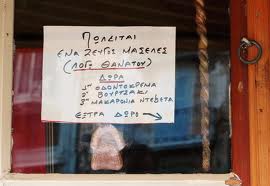 Πωλειται
ΕΝΑ ΖΕΥΓΟΣ ΜΑΣΕΛΕΣ
(ΛΟΓΩ ΘΑΝΑΤΟΥ)
ΔΩΡΑ
1ον ΟΔΟΝΤΟΚΡΕΜΑ
2ον ΒΟΥΡΤΣΑΚΙ
3ον ΜΑΚΑΡΟΝΙΑ ΝΤΕΒΕΤΑ
ΕΞΤΡΑ ΔΩΡΟ